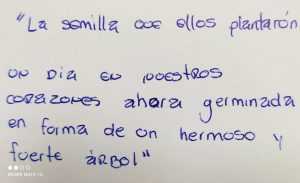 "La semilla que ellos plantarón
un dia en nuestros
corazones ahora germinada
en forma de un hermoso y
fuerte árbol"
REDMI NOTE 10